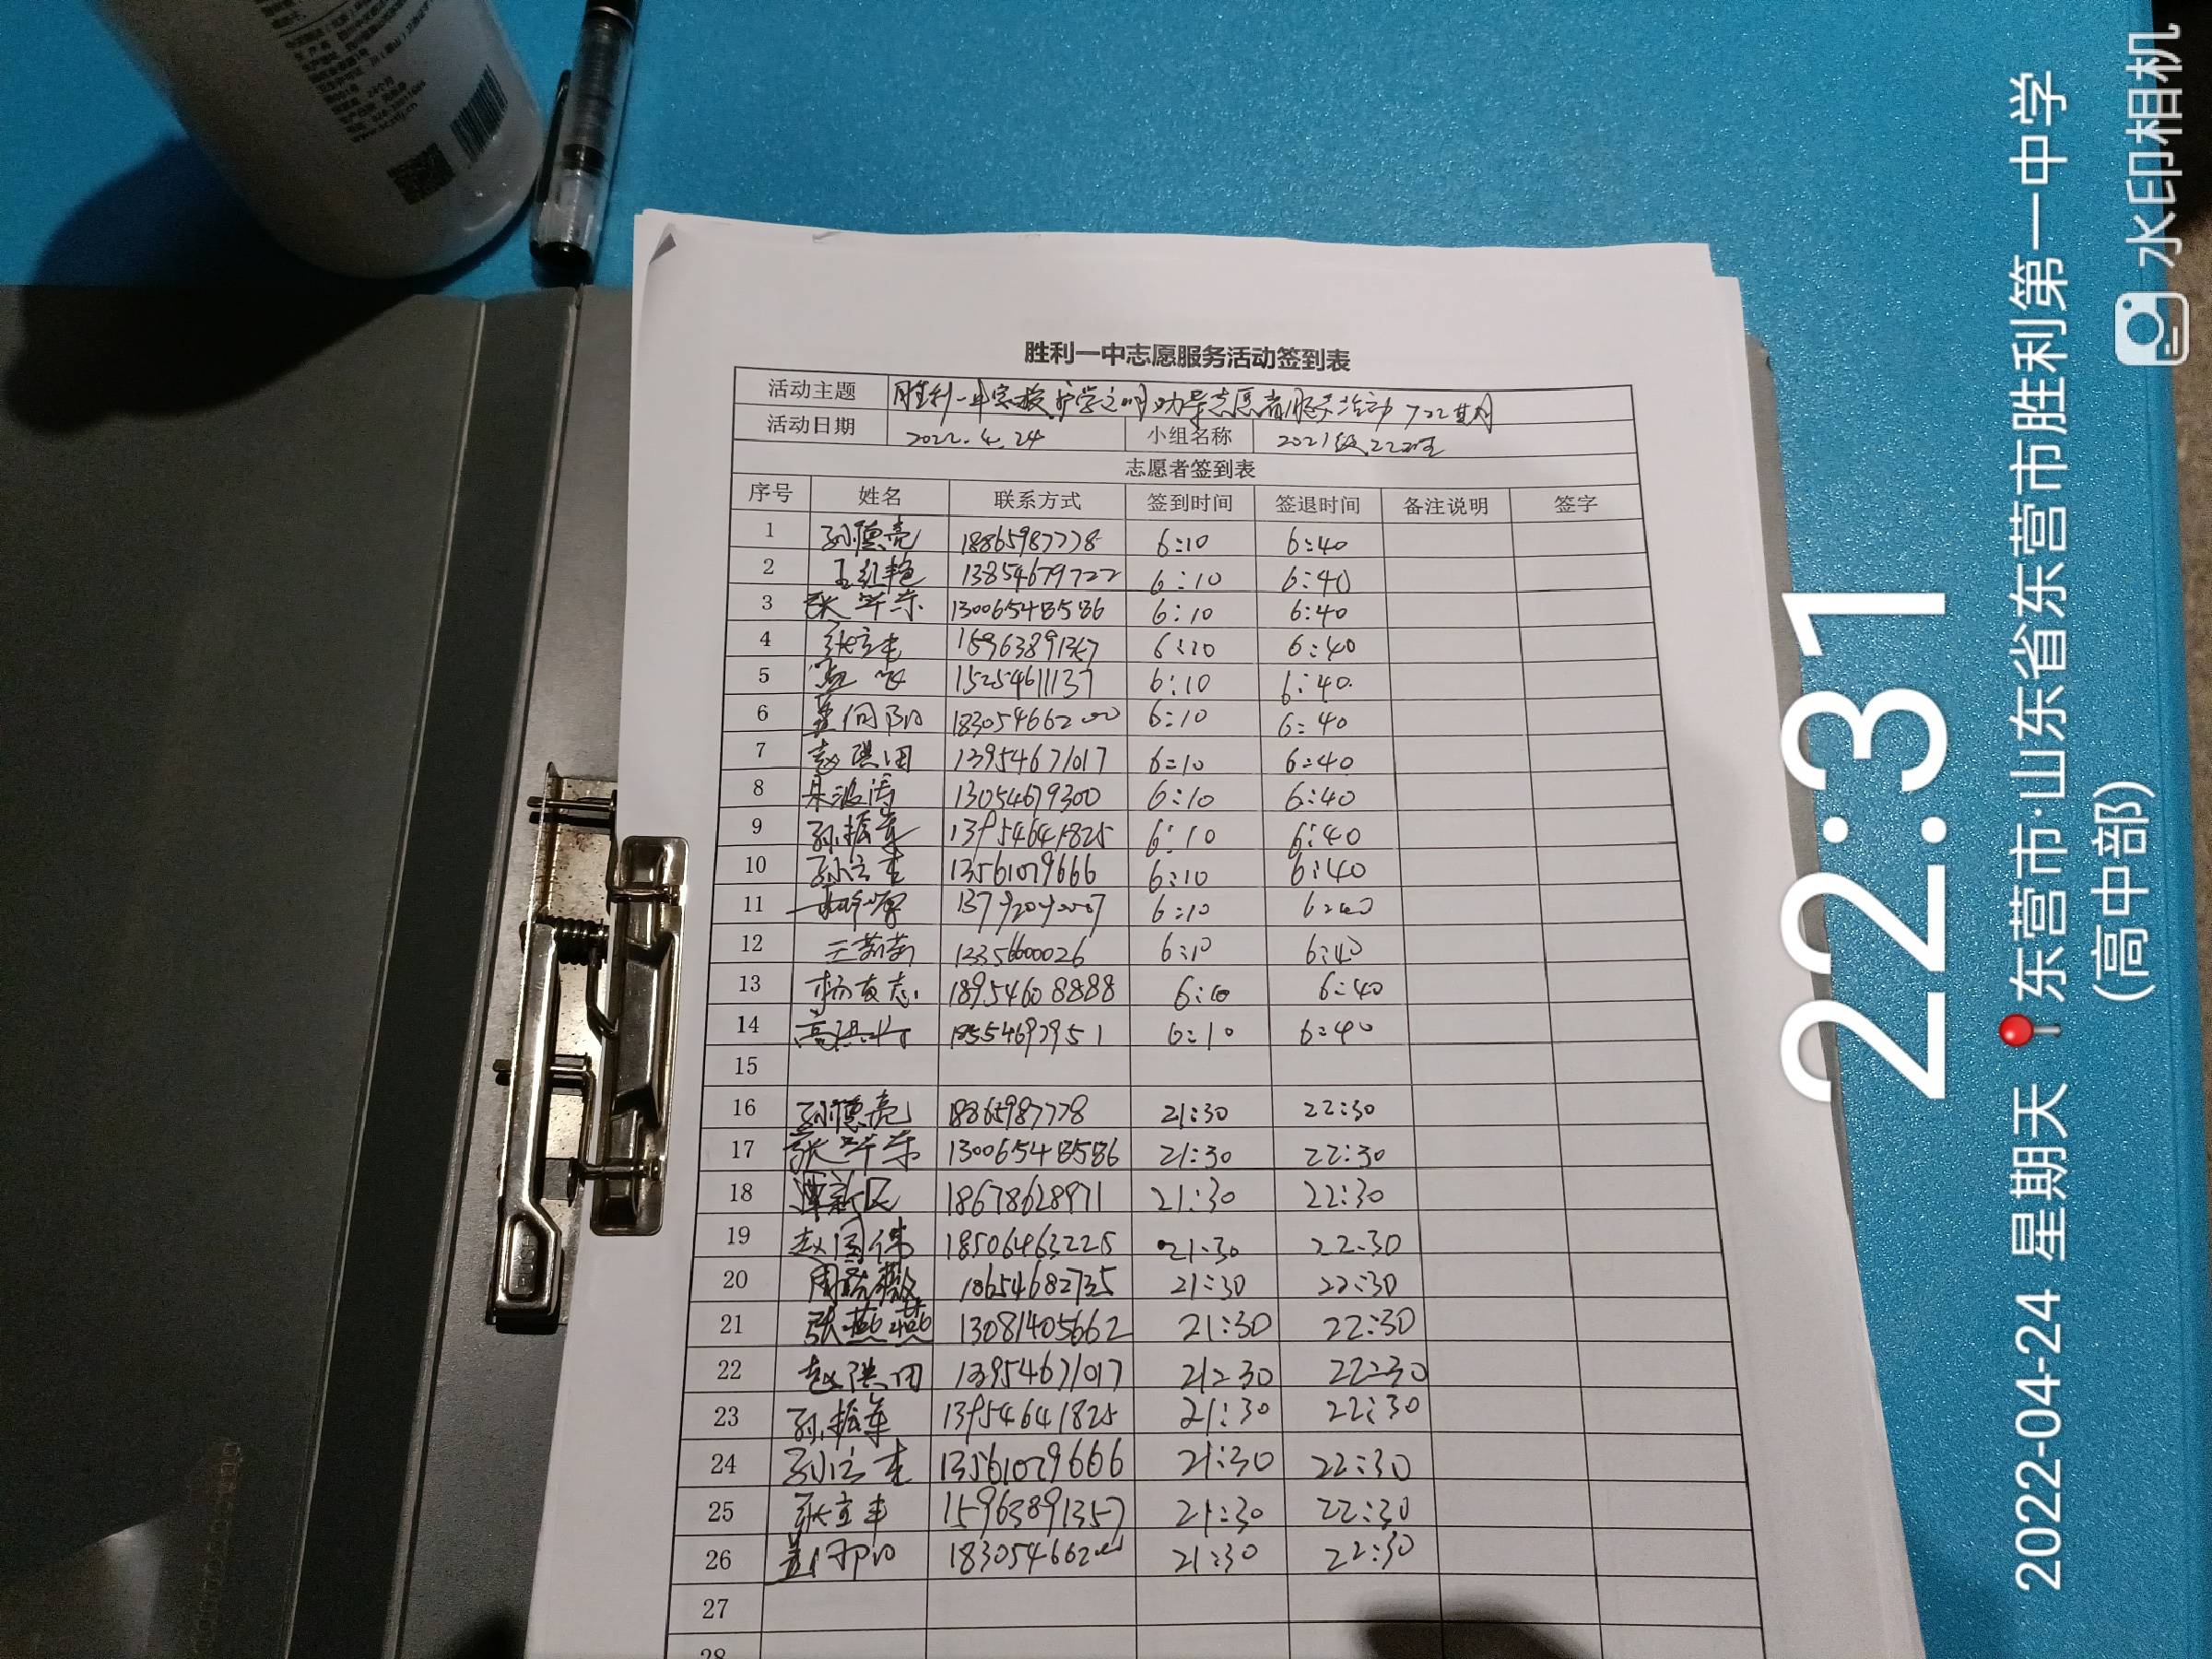 胜利一中志愿服务活动签到表
活动主题 胜利一中家校护学文明劝导志愿者服务活动722期
活动日期 2022.4.24 小组名称 2021级22班
志愿者签到表
序号 姓名 联系方式 签到时间 签退时间 备注说明 签字
1 孙德亮 18865987778 6:10 6:40
2 王红艳 13854679722 6:10 6:40
3 张华东 13006548586 6:10 6:40
4 张立丰 15963891357 6:10 6:40
5 15254611137 6:10 6:40
6 盖向阳 18305466200 6:10 6:40
7 赵琪田 13954671017 6:10 6:40
8 13054679300 6:10 6:40
9 孙振军 13954641825 6:10 6:40
10 孙立杰 13561079666 6:10 6:40
11 6:10 6:40
12 王莉莉 13356600026 6:10 6:40
13 杨友志 18954608888 6:10 6:40
14 6:10 6:40
15
16 孙德亮 18865987778 21:30 22:30
17 张华东 13006548586 21:30 22:30
18 谭新民 18678628971 21:30 22:30
19 赵国伟 18506463225 21:30 22:30
20 18654682735 21:30 22:30
21 张燕燕 13081405662 21:30 22:30
22 赵琪田 13954671017 21:30 22:30
23 孙振军 13954641825 21:30 22:30
24 孙立杰 13561079666 21:30 22:30
25 张立丰 15963891357 21:30 22:30
26 盖向阳 18305466200 21:30 22:30
27
28
PUSH
22:31
2022-04-24 星期天 东营市·山东省东营市胜利第一中学
(高中部)
水印相机